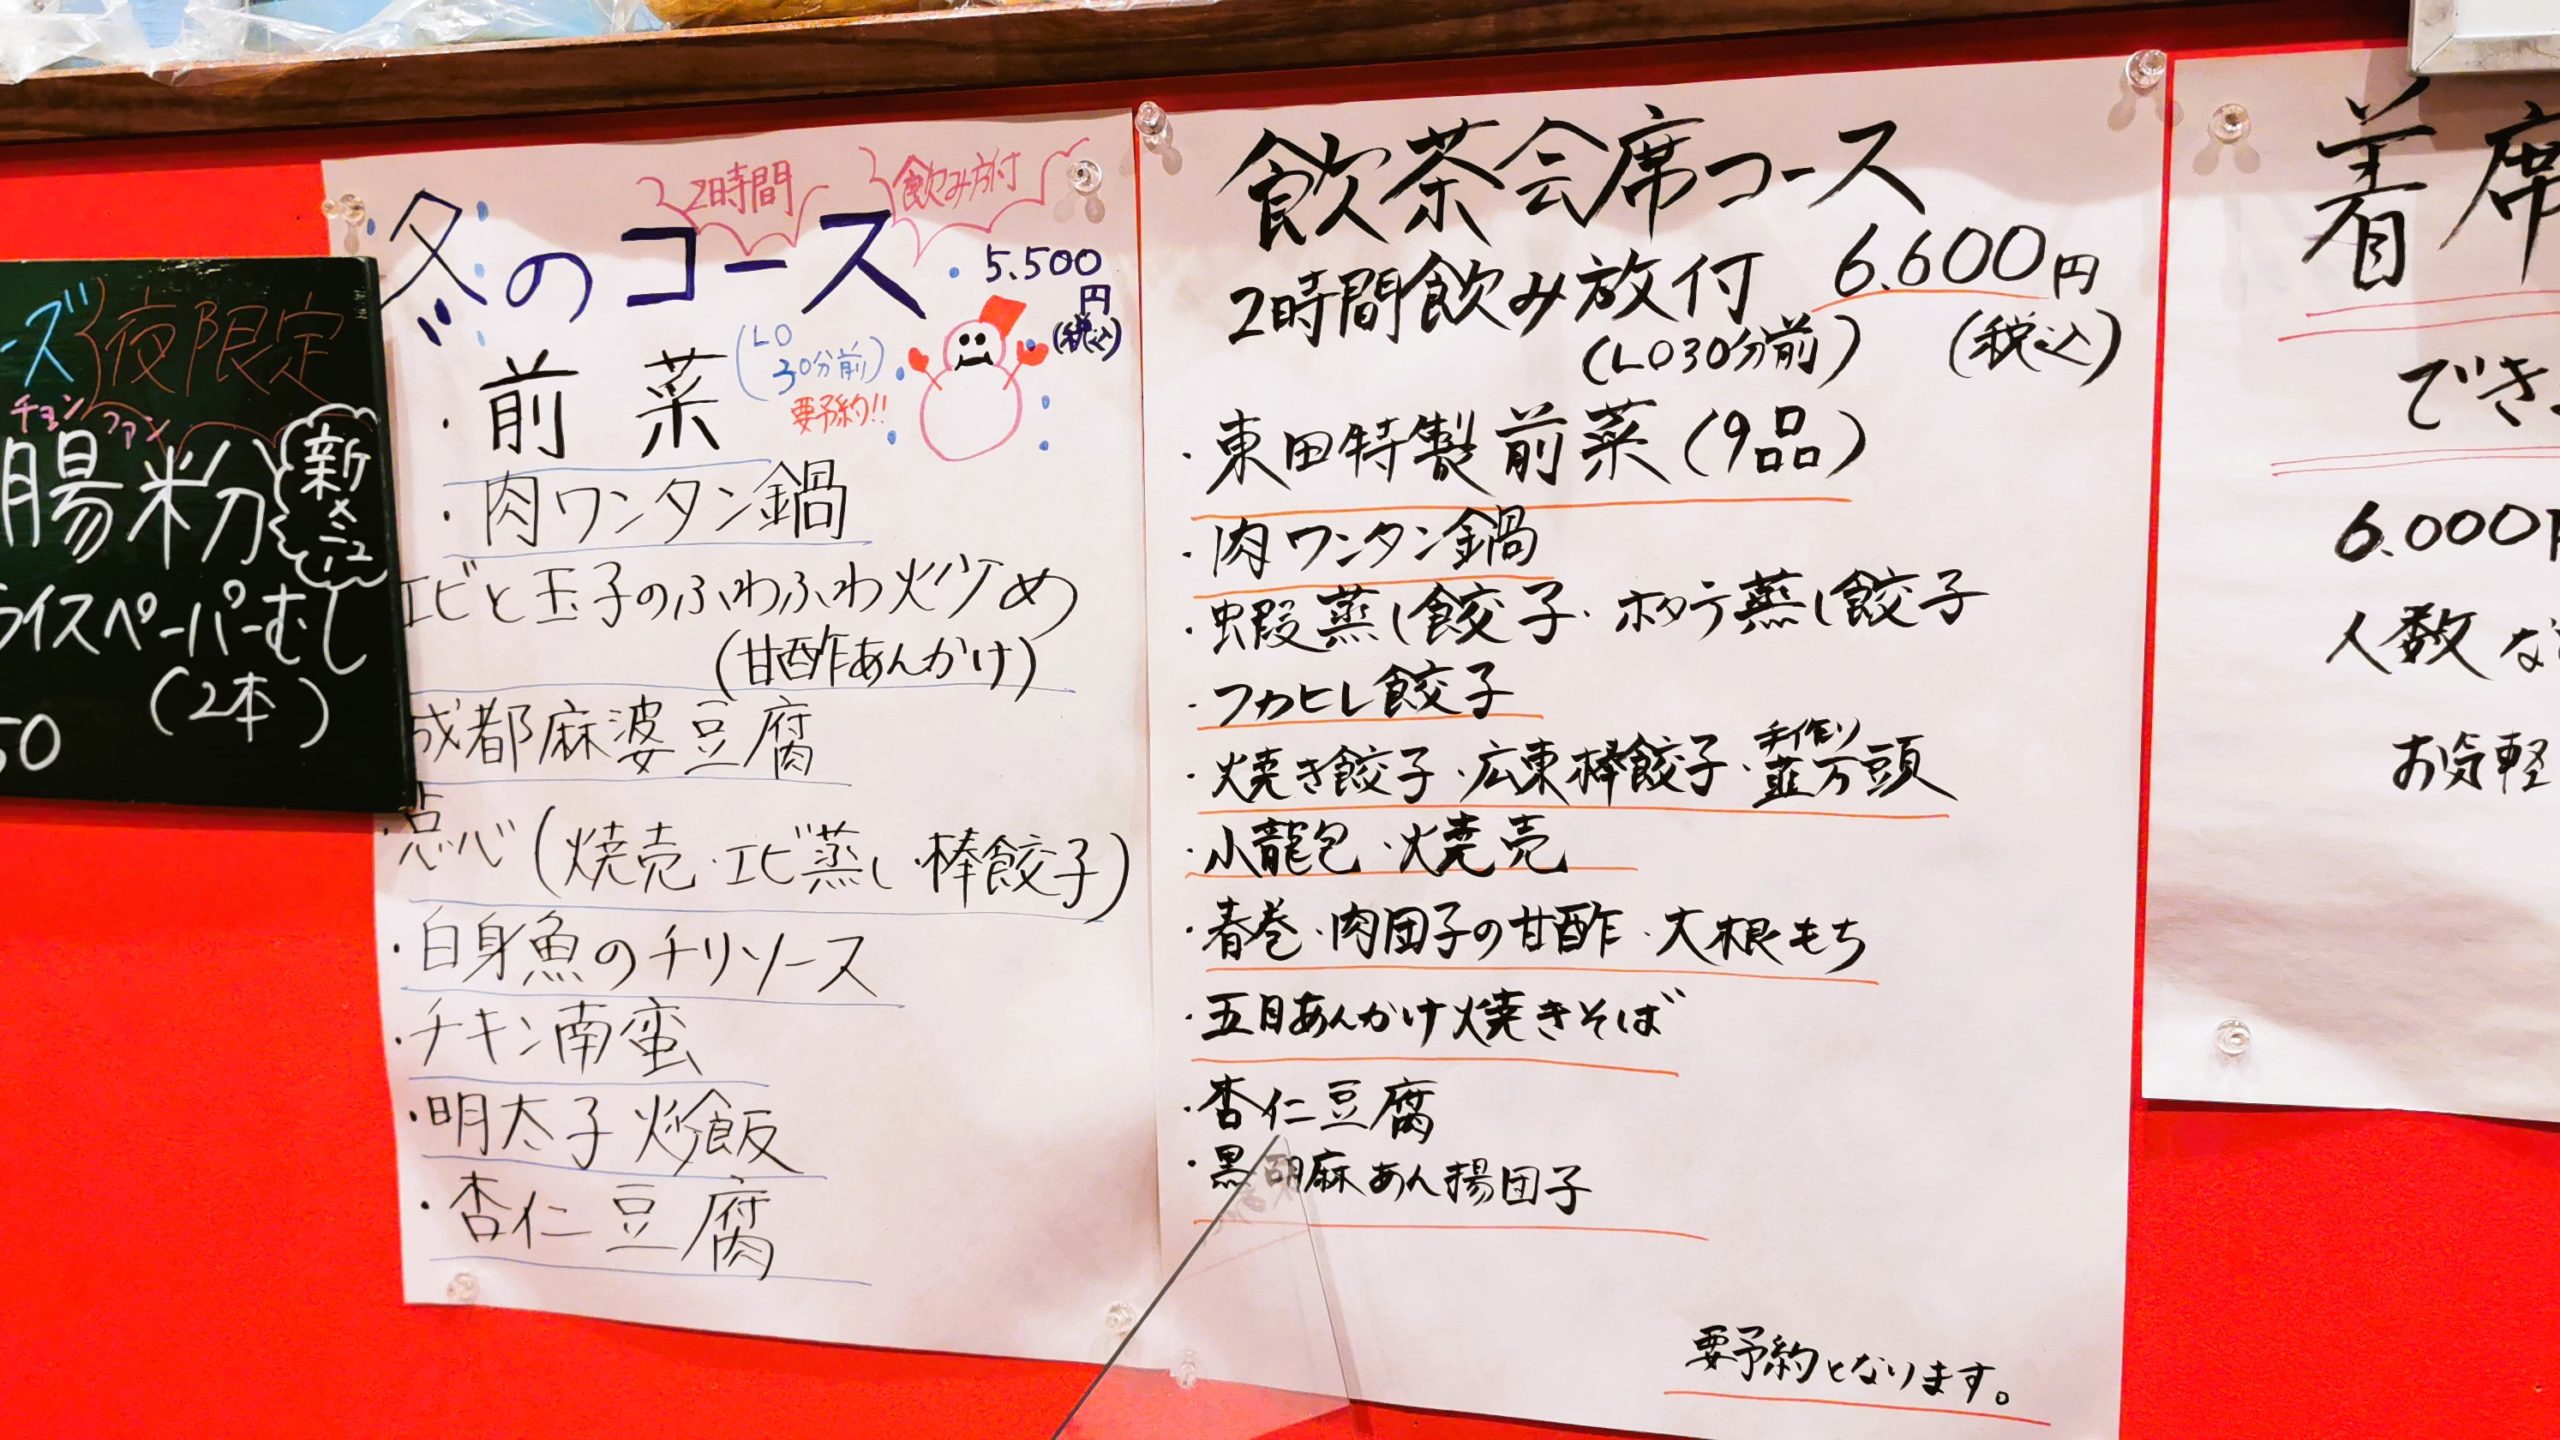 ーズ 夜限定
チョンファン
腸粉 新メニュー
ライスペーパーむし
(2本)
50
2時間 飲み放付
冬のコース 5.500円(税込)
(LO30分前)
要予約!!
・前菜
・肉ワンタン鍋
エビと玉子のふわふわ炒め
(甘酢あんかけ)
成都麻婆豆腐
・点心(焼売・エビ蒸し・棒餃子)
・白身魚のチリソース
・チキン南蛮
・明太子炒飯
・杏仁豆腐
飲茶会席コース
2時間飲み放付 6.600円
(LO30分前) (税込)
・東田特製前菜(9品)
・肉ワンタン鍋
・蝦蒸し餃子・ホタテ蒸し餃子
・フカヒレ餃子
・焼き餃子・広東棒餃子・手作り韮万頭
・小龍包・焼売
・春巻・肉団子の甘酢・大根もち
・五目あんかけ焼きそば
・杏仁豆腐
・黒胡麻あん揚団子
要予約となります。
着席
でき
6.000円
人数な
お気軽